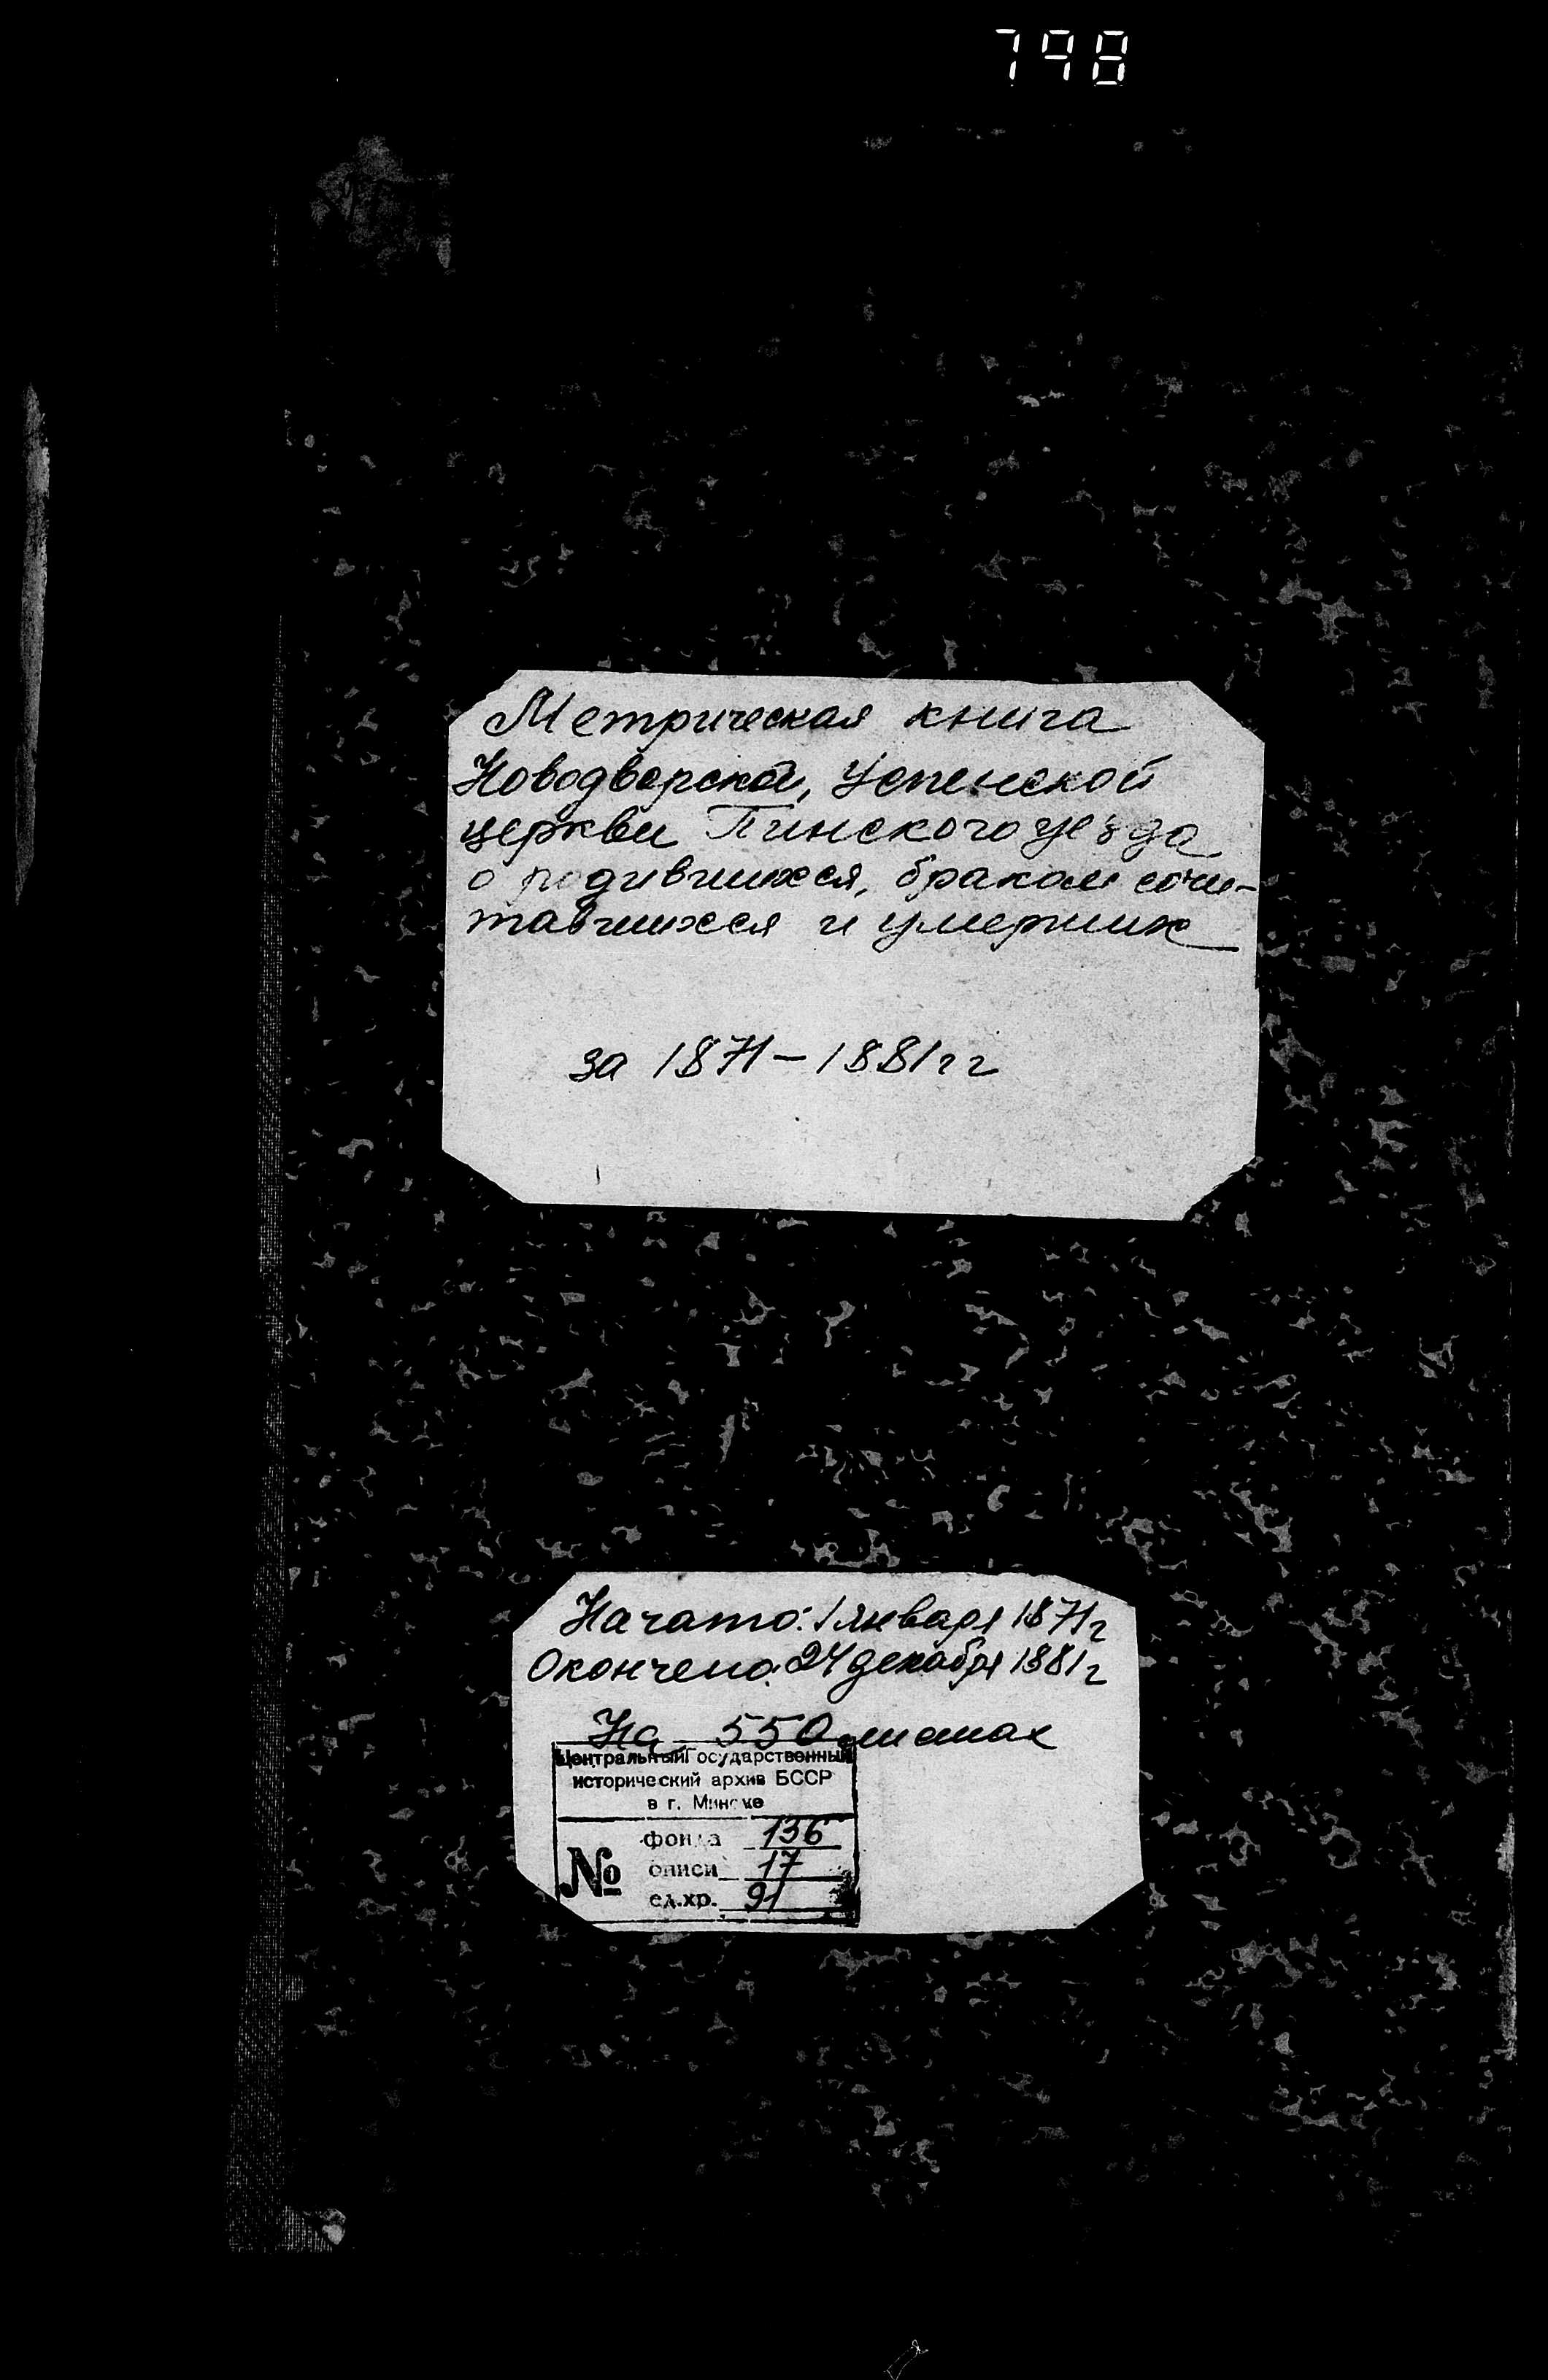 798
Метрическая книга
Новодворской, Успенской
церкви Пинского уезда
о родившихся, браком сочи-
тавшихся и умерших
за 1871-1881 гг
Начато: 1 января 1871 г
Окончено: 24 декабря 1881 г
На 550 листах
Центральный Государственный
исторический архив БССР
в г. Минске
№
фонда 136
описи 17
ед.хр. 91